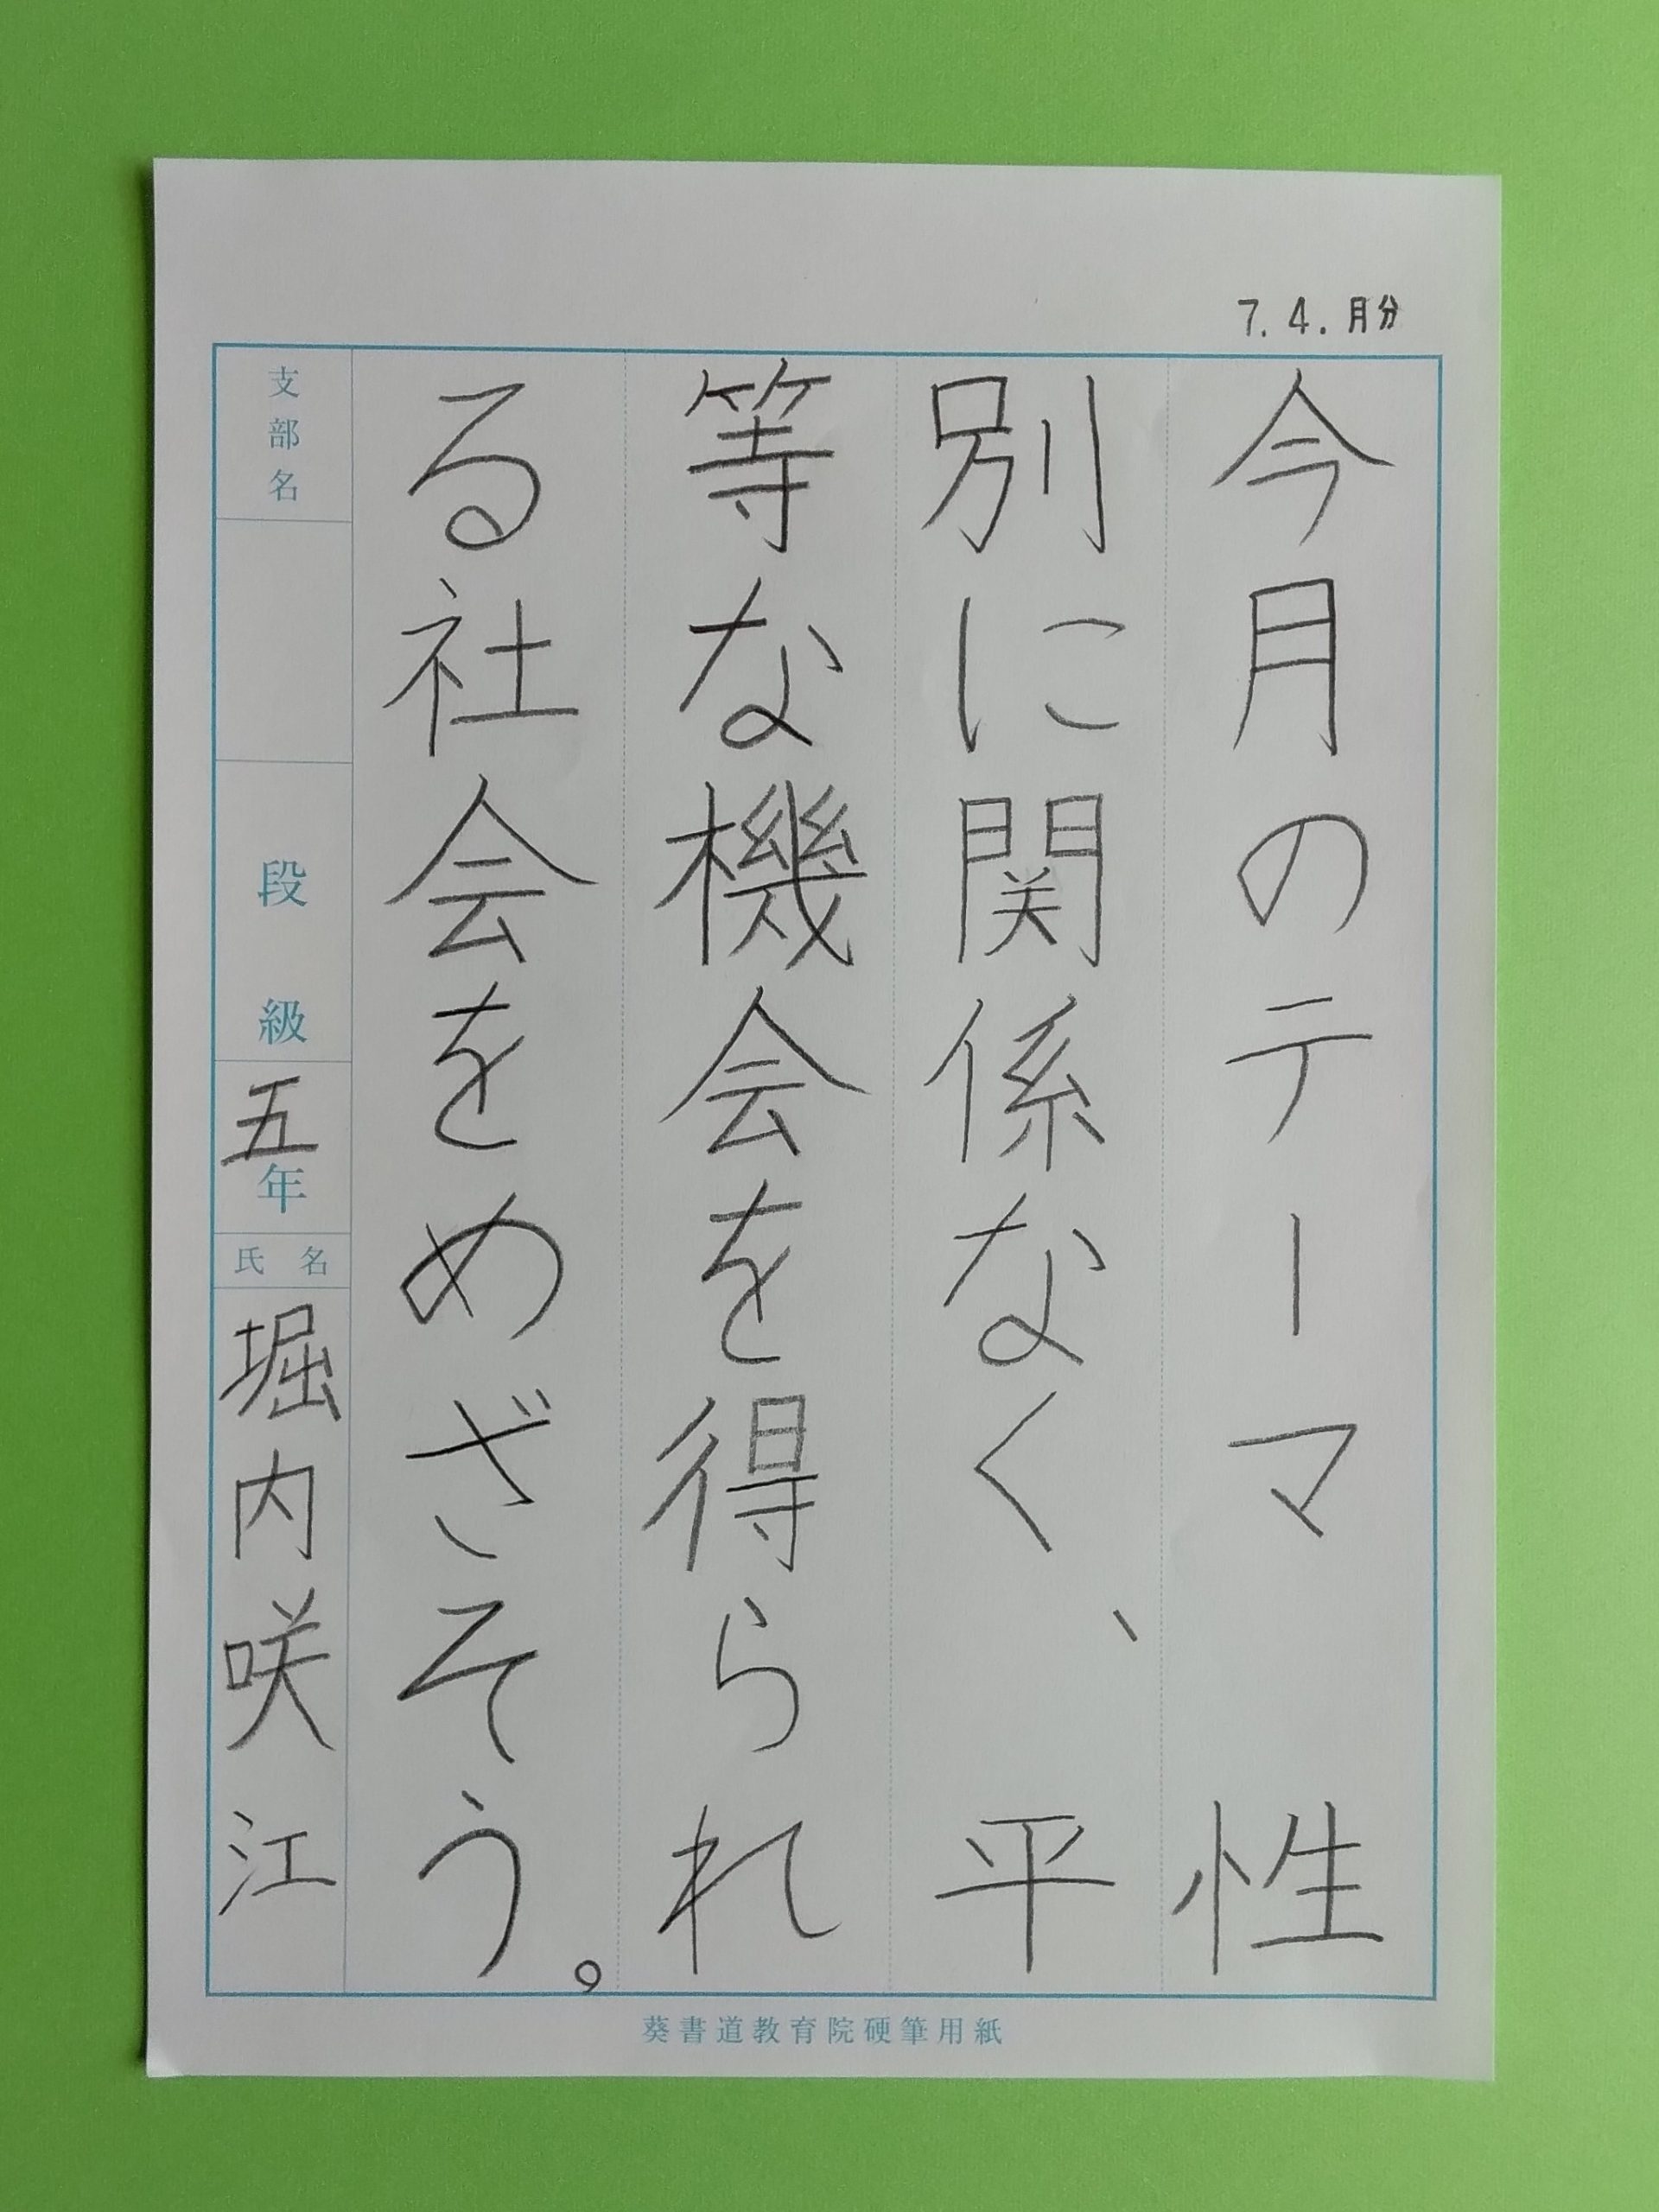 7.4.月分
今月のテーマ 性
別に関係なく、平
等な機会を得られ
る社会をめざそう。
支部名
段 級
五年
氏名
堀内咲江
葵書道教育院硬筆用紙